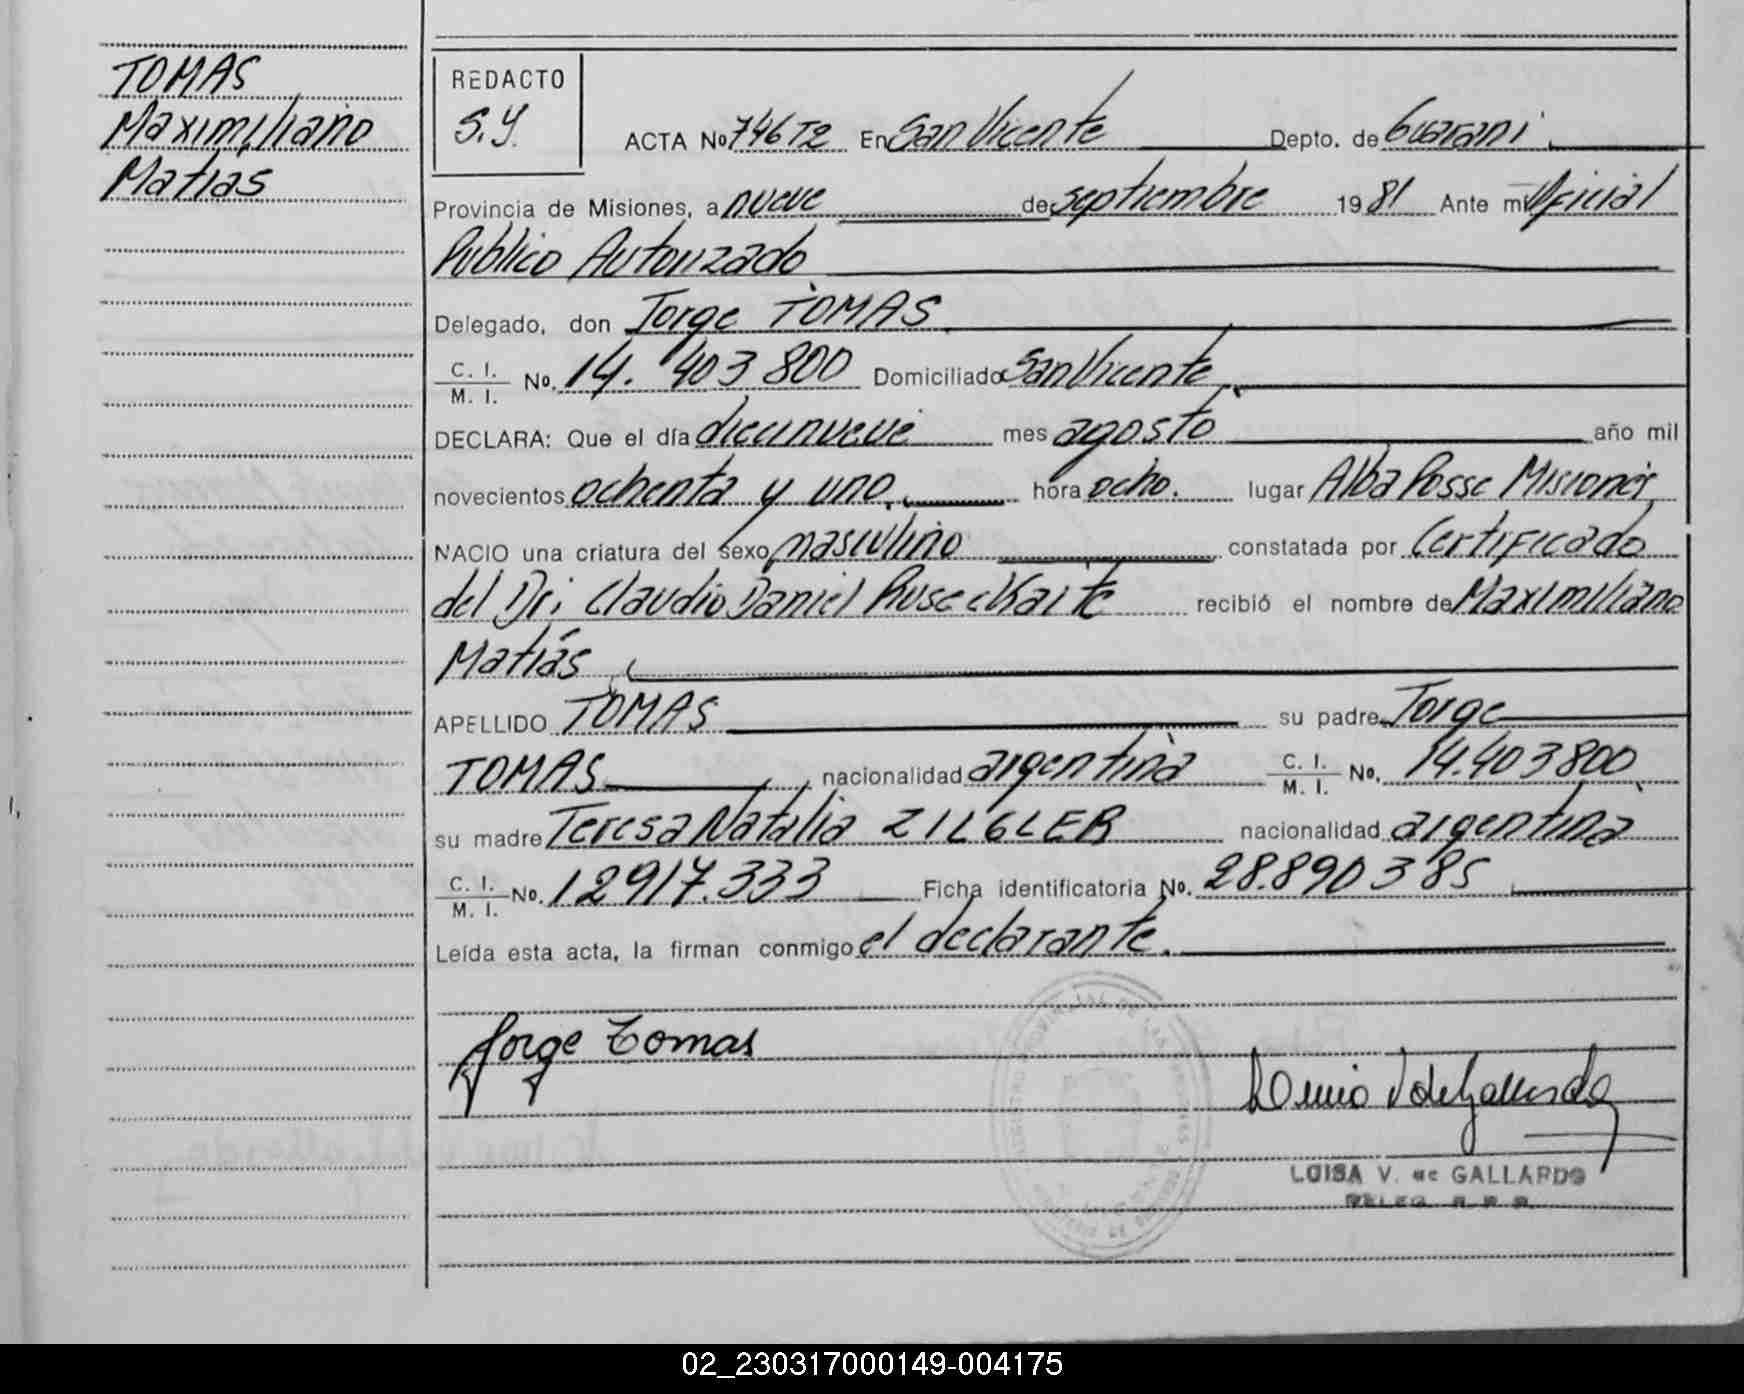 TOMAS
Maximiliano
Matías
REDACTO
S.Y.
ACTA Nº 746T2 En San Vicente Depto. de Guarani
Provincia de Misiones, a nueve de septiembre 1981 Ante mi Oficial
Publico Autorizado
Delegado, don Jorge TOMAS
C. I.
M. I. Nº. 14.403800 Domiciliado San Vicente
DECLARA: Que el día diecinueve mes agosto año mil
novecientos ochenta y uno hora ocho. lugar Alba Posse Misiones
NACIO una criatura del sexo masculino constatada por Certificado
del Dr. Claudio Daniel recibió el nombre de Maximiliano
Matías
APELLIDO TOMAS su padre Jorge
TOMAS nacionalidad argentina C. I.
M. I. Nº. 14.403800
su madre Teresa Natalia ZILGLER nacionalidad argentina
C. I.
M. I. Nº. 12917.333 Ficha identificatoria Nº. 28.890385
Leída esta acta, la firman conmigo el declarante.
Jorge Tomas
LUISA V. de GALLARDO
02_230317000149-004175